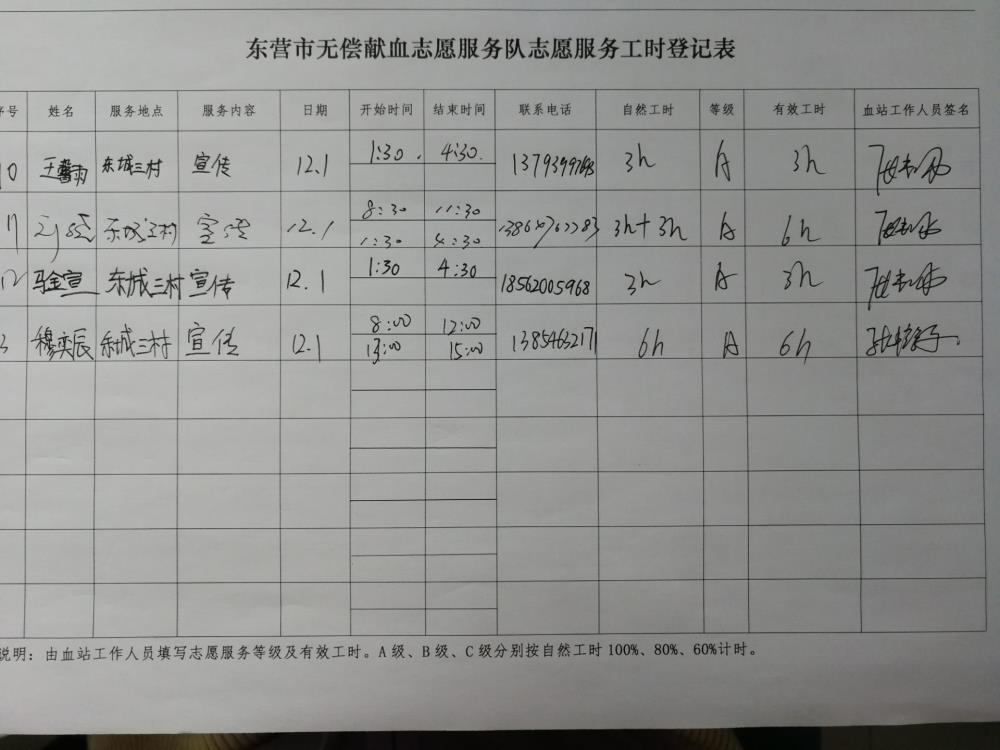 东营市无偿献血志愿服务队志愿服务工时登记表
序号 姓名 服务地点 服务内容 日期 开始时间 结束时间 联系电话 自然工时 等级 有效工时 血站工作人员签名
10 王馨雨 东城三村 宣传 12.1 1:30 4:30 3h A 3h
11 东城三村 宣传 12.1 8:30 11:30 3h+3h A 6h
1:30 4:30
12 马金宣 东城三村 宣传 12.1 1:30 4:30 18562005968 3h A 3h
3 穆奕辰 东城三村 宣传 12.1 8:00 12:00 13854632171 6h A 6h
13:00 15:00
说明：由血站工作人员填写志愿服务等级及有效工时。A级、B级、C级分别按自然工时100%、80%、60%计时。